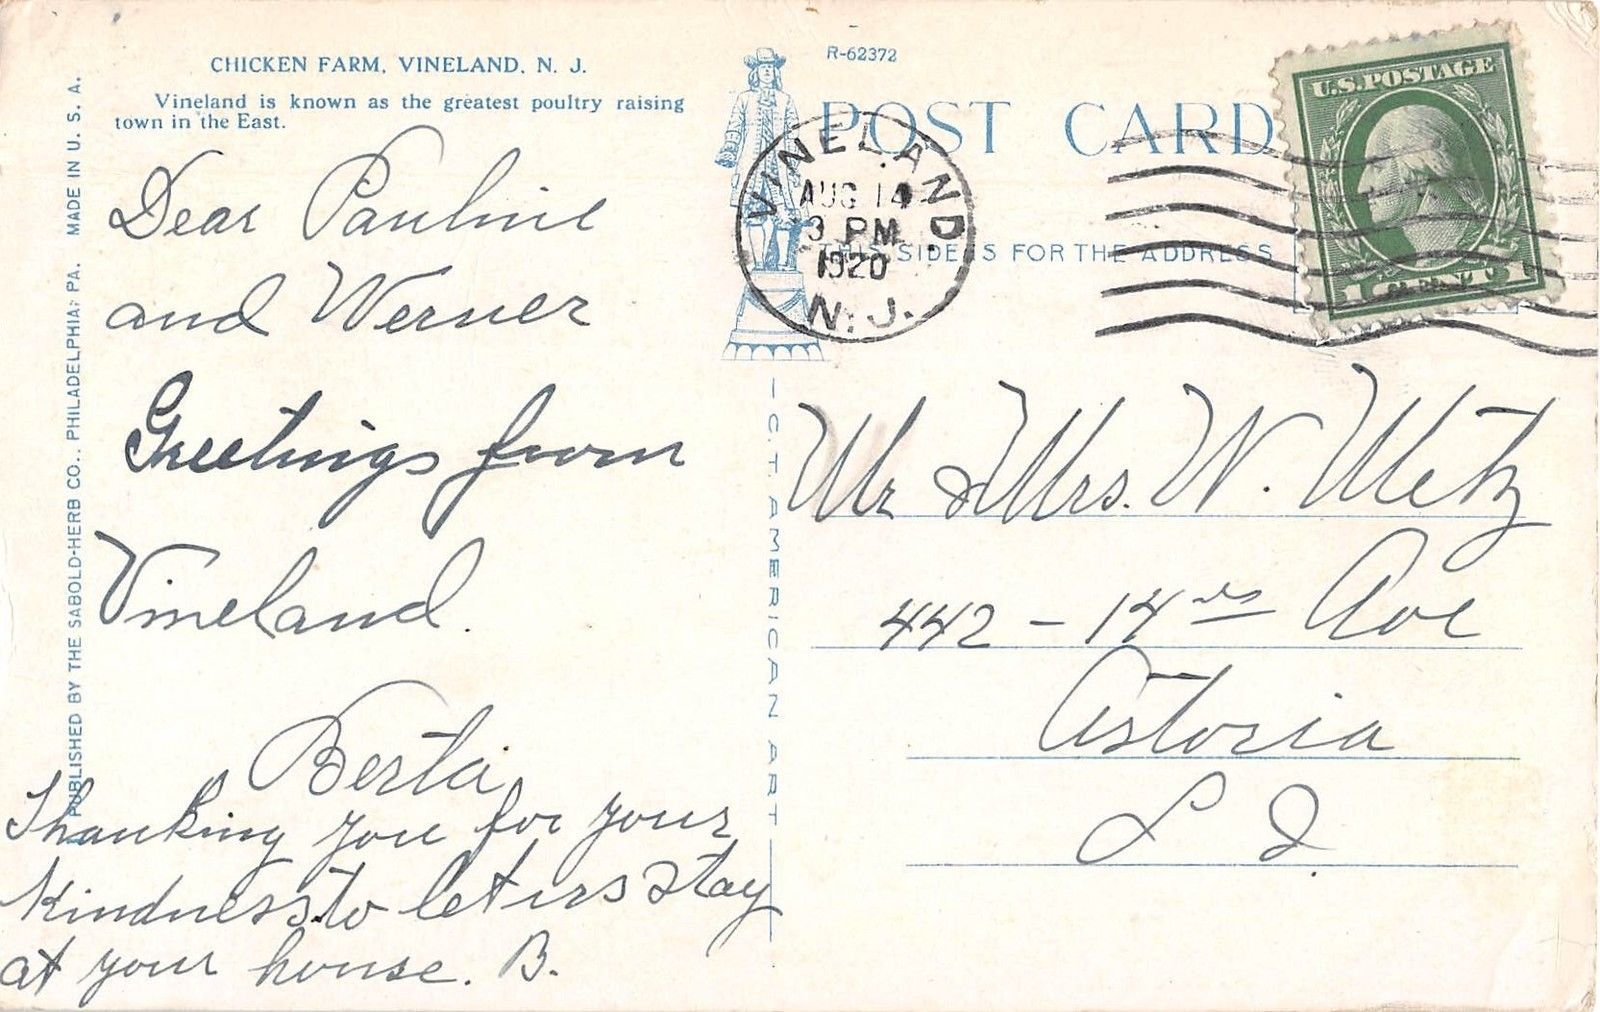 CHICKEN FARM, VINELAND, N. J.
Vineland is known as the greatest poultry raising
town in the East.
PUBLISHED BY THE SABOLD-HERB CO., PHILADELPHIA, PA. MADE IN U. S. A.
Dear Pauline
and Werner
Greetings from
Vineland.
Berta
Thanking you for your
kindness to let us stay
at your house. B.
R-62372
POST CARD
THIS SIDE IS FOR THE ADDRESS
VINELAND
AUG 14
3 PM
1920
N. J.
U.S. POSTAGE
— C. T. AMERICAN ART —
Mr & Mrs. W. Metz
442 - 14 Ave
Astoria
L I.